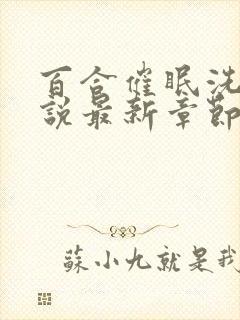 百合催眠洗
說最新章節
蘇小九就是我